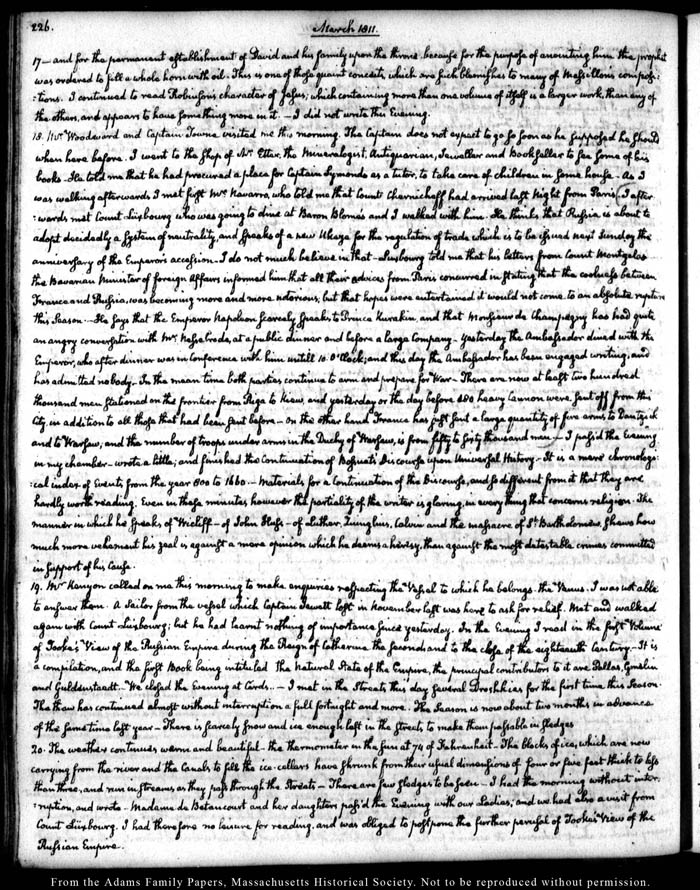 226.
March 1811.
17 — and for the permanent establishment of David and his family upon the throne because for the purpose of anointing him the prophet
was ordered to fill a whole horn with oil. This is one of those quaint conceits, which are such blemishes to many of Massillon's composi-
:tions. I continued to read Robinson's character of Jesus, which containing more than one volume of itself is a larger work than any of
the others, and appears to have something more in it. — I did not write this Evening.
18. Mr Woodward and Captain Towne visited me this morning. The Captain does not expect to go so soon as he supposed he should
when here before. I went to the Shop of Mr Etter, the Mineralogist, Antiquarian, Jeweller and Bookseller to see some of his
books. He told me that he had procured a place for Captain Symonds as a tutor, to take care of children in some house. As I
was walking afterwards I met first Mr Navarro, who told me that Count Chernicheff had arrived last Night from Paris. I after-
:wards met Count Luxbourg who was going to dine at Baron Blome's and I walked with him. He thinks that Russia is about to
adopt decidedly a system of neutrality, and speaks of a new Ukaze for the regulation of trade which is to be issued next Sunday the
anniversary of the Emperor's accession. I do not much believe in that. Luxbourg told me that his letters from Count Montgelas
the Bavarian Minister of foreign Affairs informed him that all their advices from Paris concurred in stating that the coolness between
France and Russia, was becoming more and more notorious; but that hopes were entertained it would not come to an absolute rupture
this Season. He says that the Emperor Napoleon scarcely speaks to Prince Kurakin, and that Monsieur de Champagny has had quite
an angry conversation with Mr Nesselrode, at a public dinner and before a large Company. Yesterday the Ambassador dined with the
Emperor, who after dinner was in Conference with him untill 10. O'Clock; and this day the Ambassador has been engaged writing, and
has admitted nobody. In the mean time both parties continue to arm and prepare for War. There are now at least two hundred
thousand men stationed on the frontier from Riga to Kiew, and yesterday or the day before 200 heavy Cannon were sent off from this
City, in addition to all those that had been sent before. On the other hand France has just sent a large quantity of fire arms to Dantzick
and to Warsaw, and the number of troops under arms in the Duchy of Warsaw, is from fifty to sixty thousand men — I pass'd the Evening
in my chamber — wrote a little; and finished the Continuation of Bossuet's Discourse upon Universal History. It is a mere chronologi-
:cal index of Events from the year 800 to 1660. — Materials for a Continuation of the Discourse, and so different from it that they are
hardly worth reading. Even in these minutes however the partiality of the writer is glaring, in every thing that concerns religion. The
manner in which he speaks of Wicliff — of John Huss — of Luther, Zuinglius, Calvin and the massacre of St Bartholomew, shews how
much more vehement his zeal is against a mere opinion which he deems a heresy, than against the most detestable crimes committed
in support of his Cause.
19. Mr Kenyon called on me this morning to make enquiries respecting the Vessel to which he belongs the Venus. I was not able
to answer them. A Sailor from the vessel which Captain Jewett left in November last was here to ask for relief. Met and walked
again with Count Luxbourg; but he had learnt nothing of importance since yesterday. In the Evening I read in the first Volume
of Tooke's View of the Russian Empire during the Reign of Catherine the second and to the close of the eighteenth Century. It is
a compilation, and the first Book being intituled The Natural State of the Empire, the principal contributors to it are Pallas, Gmelin
and Guldenstaedt. We closed the Evening at Cards. — I met in the Streets this day several Droshkies for the first time this Season.
The thaw has continued almost without interruption a full fortnight and more. The Season is now about two months in advance
of the same time last year. There is scarcely snow and ice enough left in the Streets to make them passable in sledges
20. The weather continues warm and beautiful — the thermometer in the sun at 74 of Fahrenheit. The blocks of ice, which are now
carrying from the river and the Canals to fill the ice-cellars have shrunk from their usual dimensions of four or five feet thick to less
than three, and run in streams as they pass through the Streets — There are few sledges to be seen. — I had the morning without inter-
:ruption, and wrote. Madame de Betancourt and her daughters pass'd the Evening with our Ladies; and we had also a visit from
Count Luxbourg. I had therefore no leisure for reading, and was obliged to postpone the further perusal of Tooke's View of the
Russian Empire.
From the Adams Family Papers, Massachusetts Historical Society. Not to be reproduced without permission.